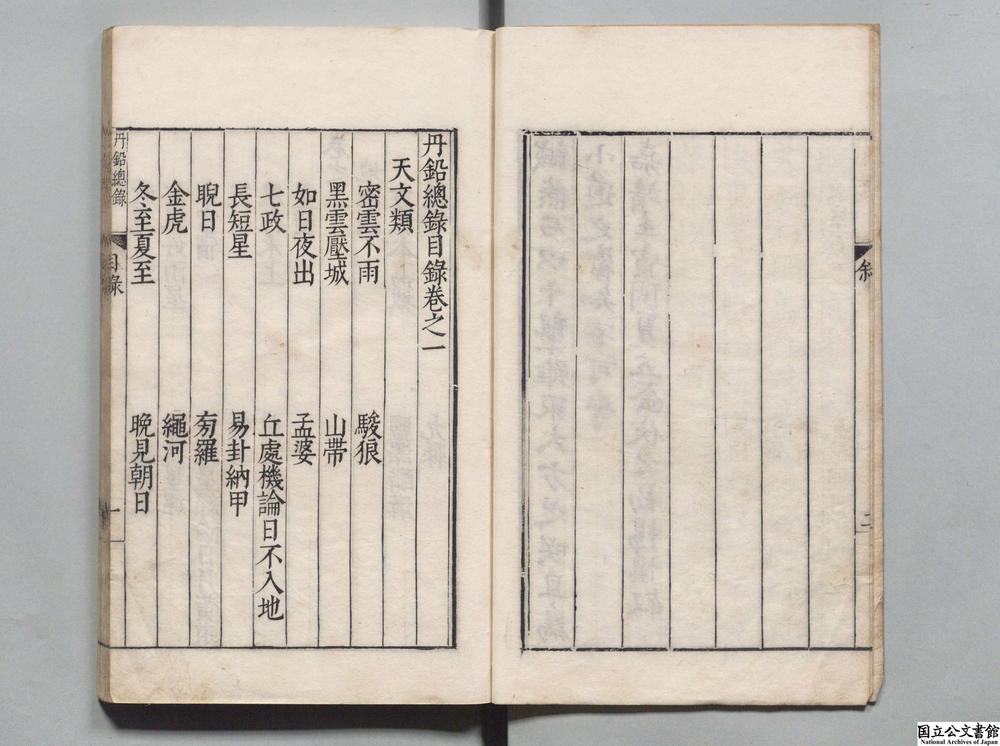 叙
二
丹鉛總錄目錄卷之一
天文類
密雲不雨 駿狼
黑雲壓城 山帶
如日夜出 孟婆
七政 丘處機論日不入地
長短星 易卦納甲
睨日 𠣏羅
金虎 繩河
冬至夏至 晚見朝日
丹鉛總錄
目錄
一
国立公文書館
National Archives of Japan